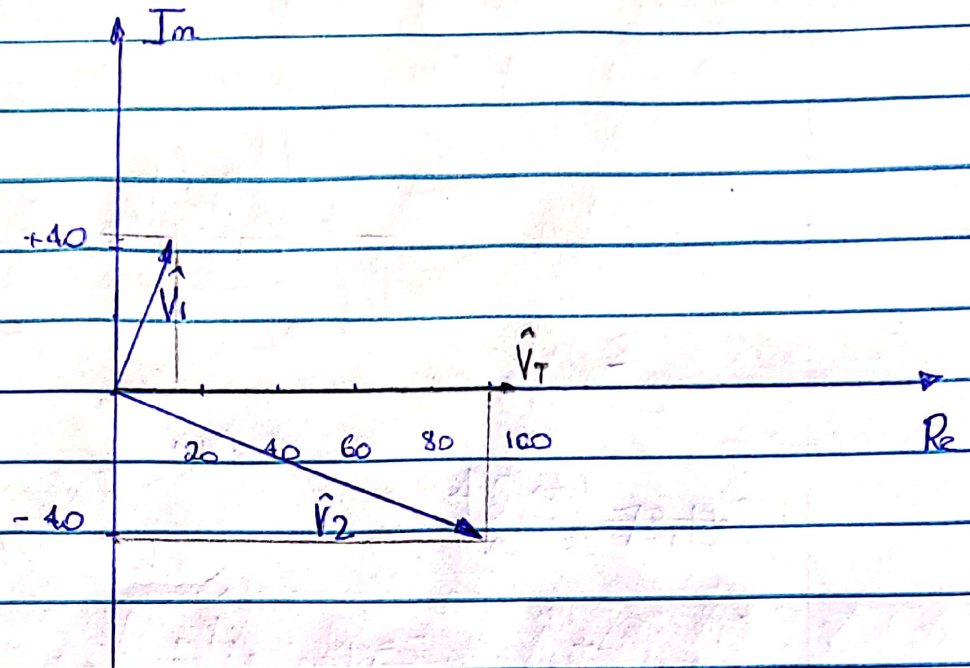 Im
+40
V̂1
V̂T
20 40 60 80 100
Re
-40
V̂2